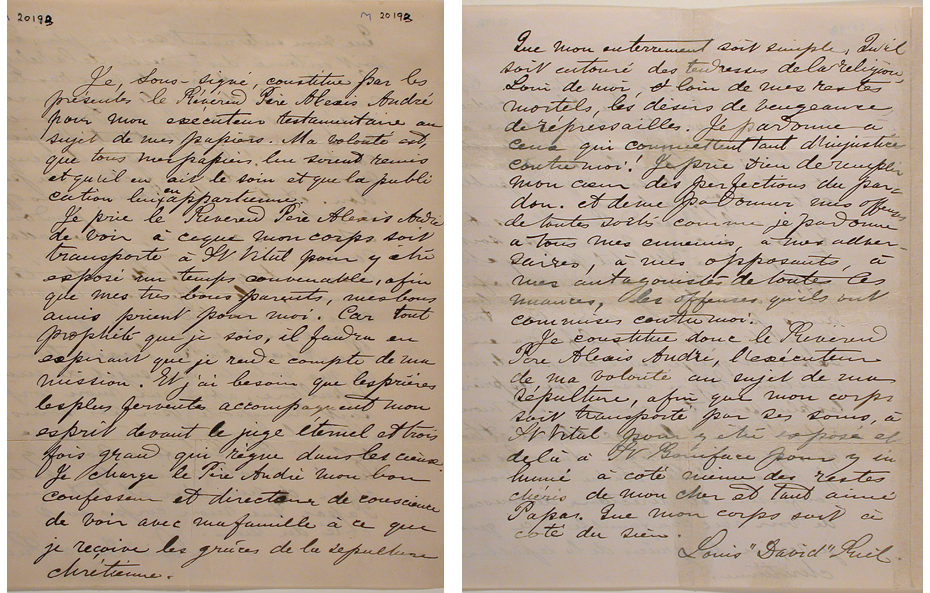 M 20192
M 20192
Je, Sous-signé, constitue par les
présentes le Révérend Père Alexis André
pour mon exécuteur testamentaire au
sujet de mes papiers. Ma volonté est,
que tous mes papiers lui soient remis
et qu'il en ait le soin et que la publi
cation lui en appartienne.
Je prie le Révérend Père Alexis André
de voir à ceque mon corps soit
transporté à St Vital pour y être
exposé un temps convenable, afin
que mes très bons parents, mes bons
amis prient pour moi. Car tout
prophète que je sois, il faudra en
expirant que je rende compte de ma
mission. Et j'ai besoin que les prières
les plus ferventes accompagnent mon
esprit devant le juge éternel et trois
fois grand qui règne dans les cieux.
Je charge le Père André mon bon
confesseur et directeur de conscience
de voir avec ma famille à ce que
je reçoive les grâces de la sépulture
chrétienne.
Que mon enterrement soit simple, Qu'il
soit entouré des tendresses de la religion,
Loin de moi, et loin de mes restes
mortels, les désirs de vengeance
de répressailles. Je pardonne à
ceux qui commettent tant d'injustice
contre moi! Je prie Dieu de remplir
mon cœur des perfections du par-
don. et de me pardonner mes offenses
de toutes sortes comme je pardonne
à tous mes ennemis, à mes adver-
saires, à mes opposants, à
mes antagonistes de toutes les
nuances, les offenses qu'ils ont
commises contre moi.
Je constitue donc le Révérend
Père Alexis André, l'exécuteur
de ma volonté au sujet de ma
sépulture, afin que mon corps
soit transporté par ses soins, à
St Vital pour y être exposé et
de là à St Boniface pour y in
humé à côté même des restes
chéris de mon cher et tant aimé
Papas. Que mon corps soit à
côté du sien.
Louis "David" Riel.